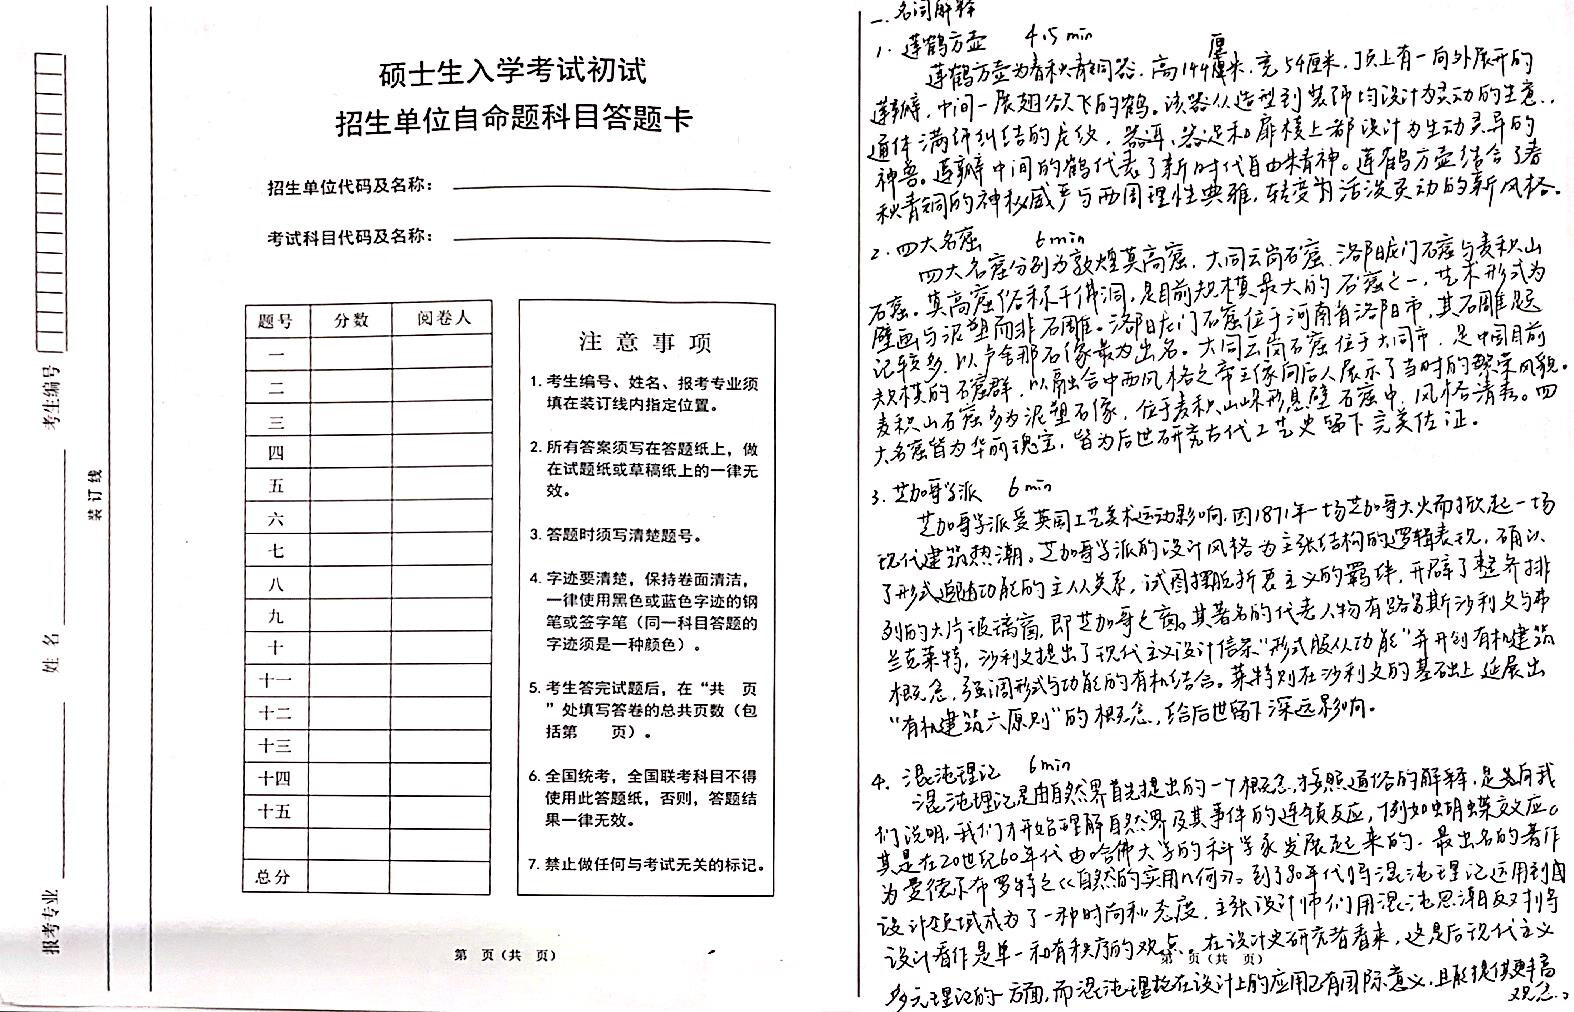 考生编号
姓 名
报考专业
装订线
硕士生入学考试初试
招生单位自命题科目答题卡
招生单位代码及名称：
考试科目代码及名称：
题号 分数 阅卷人
一
二
三
四
五
六
七
八
九
十
十一
十二
十三
十四
十五
总分
注 意 事 项
1. 考生编号、姓名、报考专业须
填在装订线内指定位置。
2. 所有答案须写在答题纸上，做
在试题纸或草稿纸上的一律无
效。
3. 答题时须写清楚题号。
4. 字迹要清楚，保持卷面清洁，
一律使用黑色或蓝色字迹的钢
笔或签字笔（同一科目答题的
字迹须是一种颜色）。
5. 考生答完试题后，在“共 页
”处填写答卷的总共页数（包
括第 页）。
6. 全国统考，全国联考科目不得
使用此答题纸，否则，答题结
果一律无效。
7. 禁止做任何与考试无关的标记。
第 页（共 页）
一. 名词解释
1. 莲鹤方壶 4.5 min
莲鹤方壶为春秋青铜器，高144厘米，宽54厘米，顶上有一向外展开的
莲瓣，中间一展翅欲飞的鹤。该器从造型到装饰均设计为灵动的生意，
通体满饰纠结的龙纹，器耳、器足和扉棱上都设计为生动灵异的
神兽。莲瓣中间的鹤代表了新时代自由精神。莲鹤方壶结合了春
秋青铜的神权威严与西周理性典雅，转变为活泼灵动的新风格。
2. 四大名窟 6min
四大名窟分别为敦煌莫高窟，大同云岗石窟，洛阳龙门石窟与麦积山
石窟。莫高窟俗称千佛洞，是目前规模最大的石窟之一，艺术形式为
壁画与泥塑而非石雕。洛阳龙门石窟位于河南省洛阳市，其石雕题
记较多，以卢舍那石像最为出名。大同云岗石窟位于大同市，是中国目前
规模的石窟群，以融合中西风格之帝王像向后人展示了当时的繁荣风貌。
麦积山石窟多为泥塑石像，位于麦积山山崃形悬壁石窟中，风格清秀。四
大名窟皆为华丽瑰宝，皆为后世研究古代工艺史留下完美佐证。
3. 芝加哥学派 6min
芝加哥学派受英国工艺美术运动影响，因1871年一场芝加哥大火而掀起一场
现代建筑热潮。芝加哥学派的设计风格为主张结构的逻辑表现，确认
了形式追随功能的主从关系，试图摆脱折衷主义的羁绊，开辟了整齐排
列的大片玻璃窗，即芝加哥之窗。其著名的代表人物有路易斯沙利文与弗
兰克莱特，沙利文提出了现代主义设计信条“形式服从功能”并开创有机建筑
概念，强调形式与功能的有机结合。莱特则在沙利文的基础上延展出
“有机建筑六原则”的概念，给后世留下深远影响。
4. 混沌理论 6min
混沌理论是由自然界首先提出的一个概念，按照通俗的解释，是先向我
们说明，我们才开始理解自然界及其事件的连锁反应，例如蝴蝶效应。
其是在20世纪60年代由哈佛大学的科学家发展起来的，最出名的著作
为曼德尔布罗特之《自然的实用几何》。到了80年代将混沌理论运用到
设计领域成为了一种时尚和态度，主张设计师们用混沌思潮反对将
设计看作是单一和有秩序的观点。在设计史研究者看来，这是后现代主义
第 页（共 页）
多元理论的一方面，而混沌理论在设计上的应用已有国际意义，且能提供更高
观念。